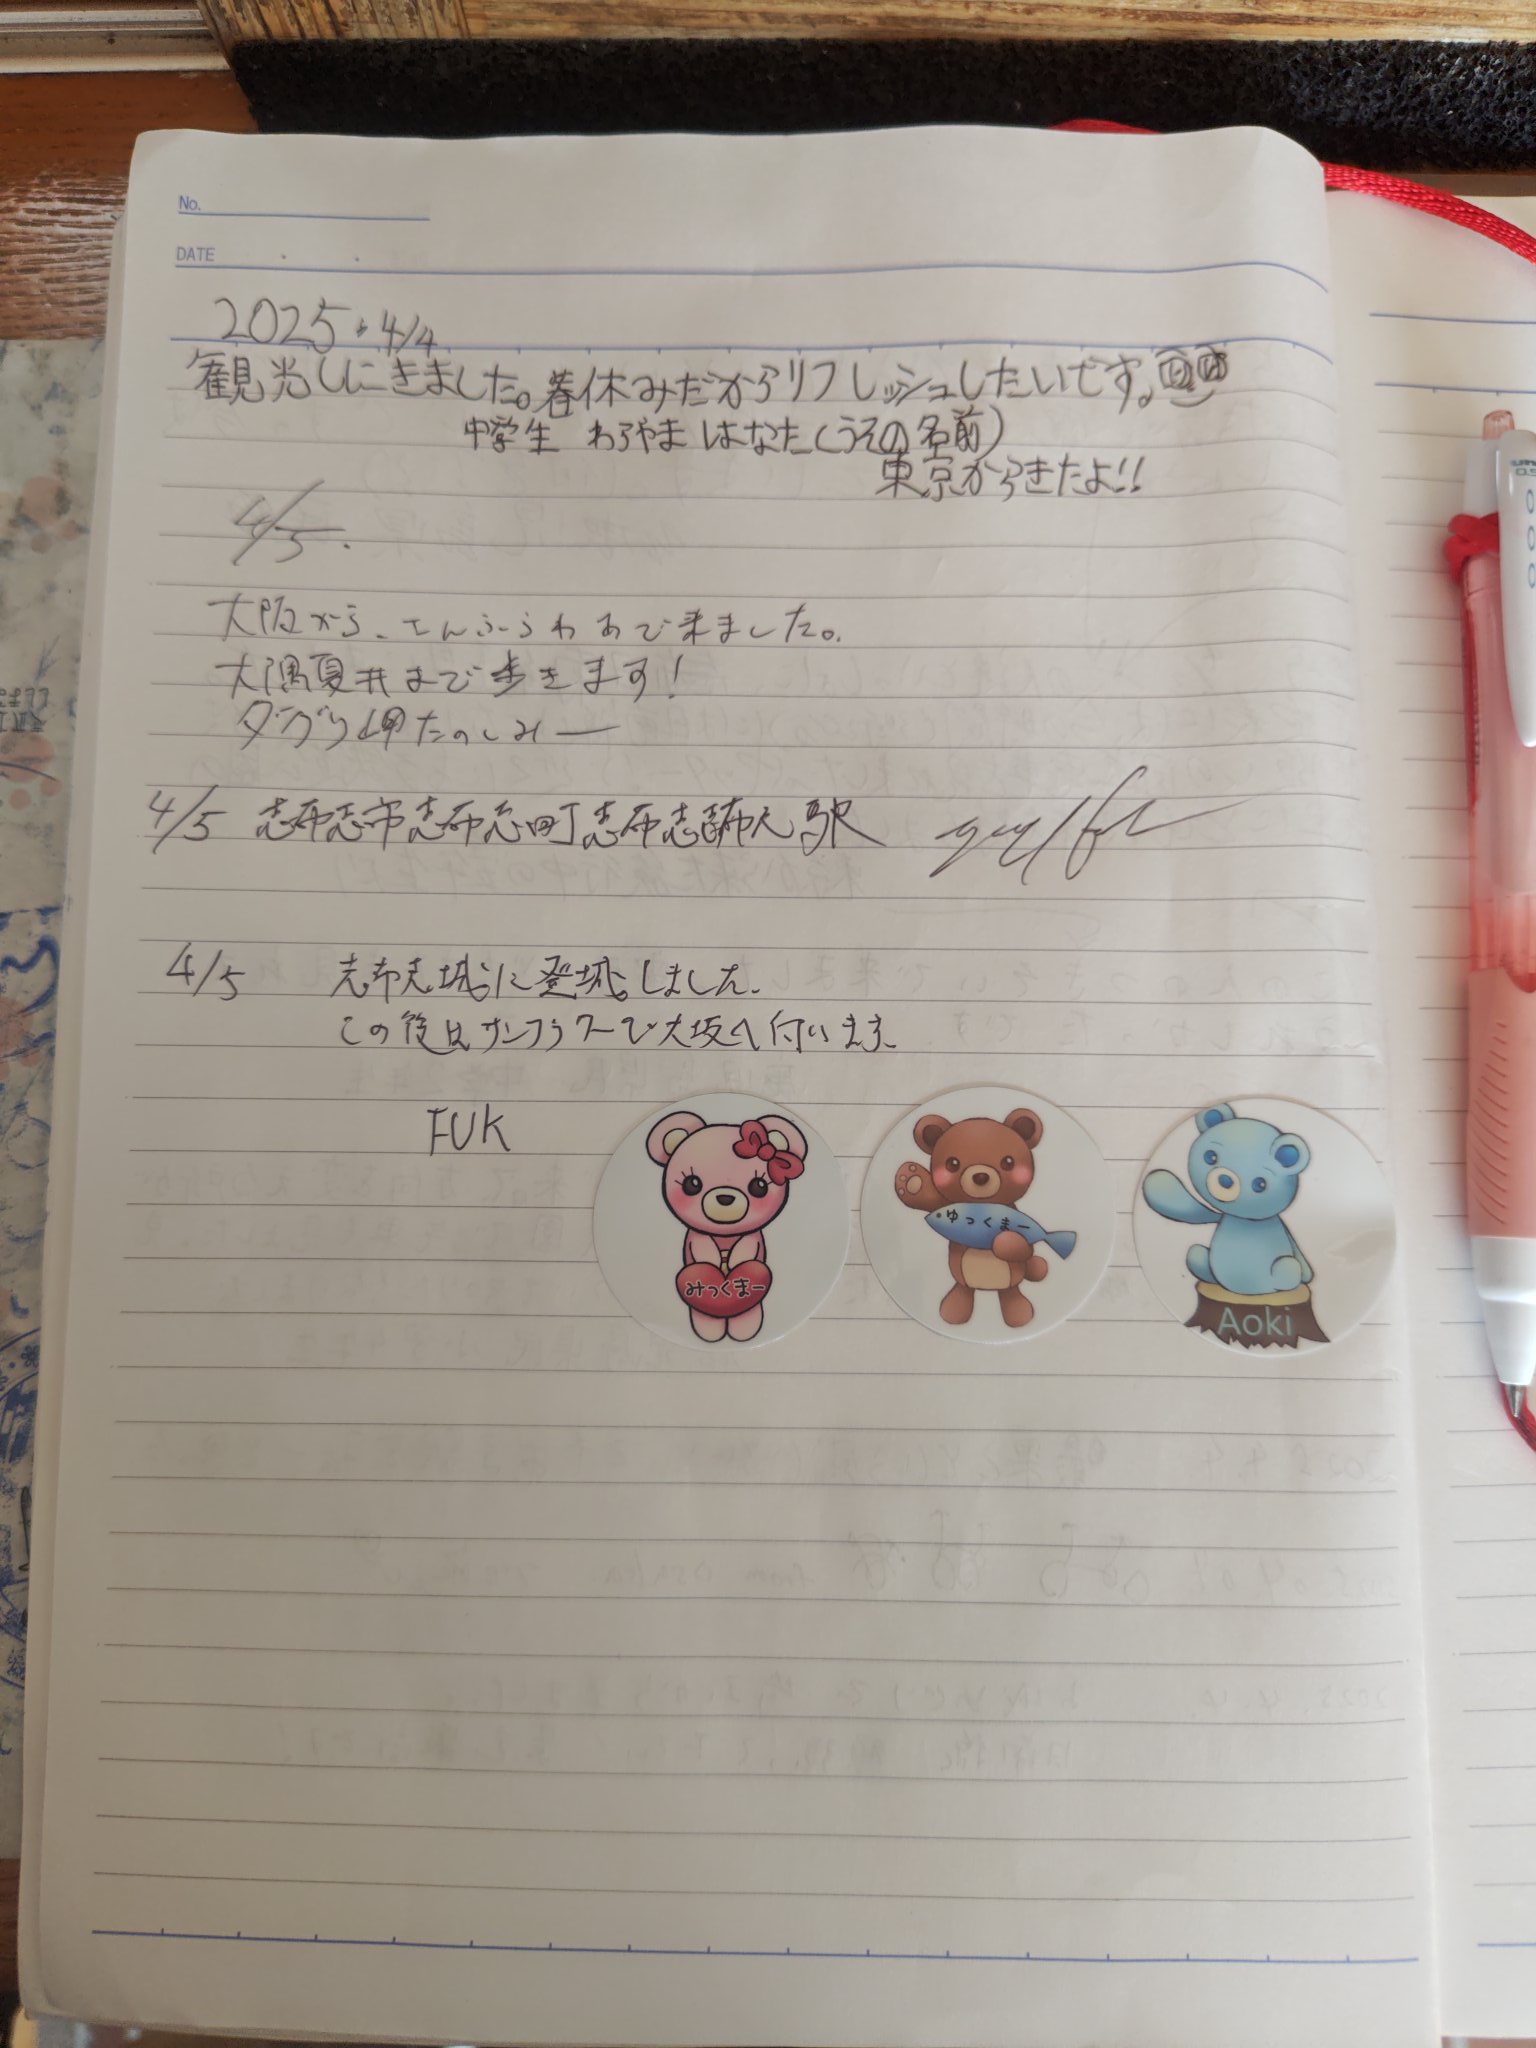 No.
DATE
2025.4/4
観光しにきました。春休みだからリフレッシュしたいです。
中学生 わろやま はなた(うその名前)
東京からきたよ!!
4/5.
大阪から、さんふらわあで来ました。
大隅夏井まで歩きます!
ダグリ岬たのしみー
4/5 志布志市志布志町志布志 駅
4/5 志布志城に登城しました。
この後はサンフラワーで大坂へ行います。
FUK
みっくまー
ゆっくまー
Aoki